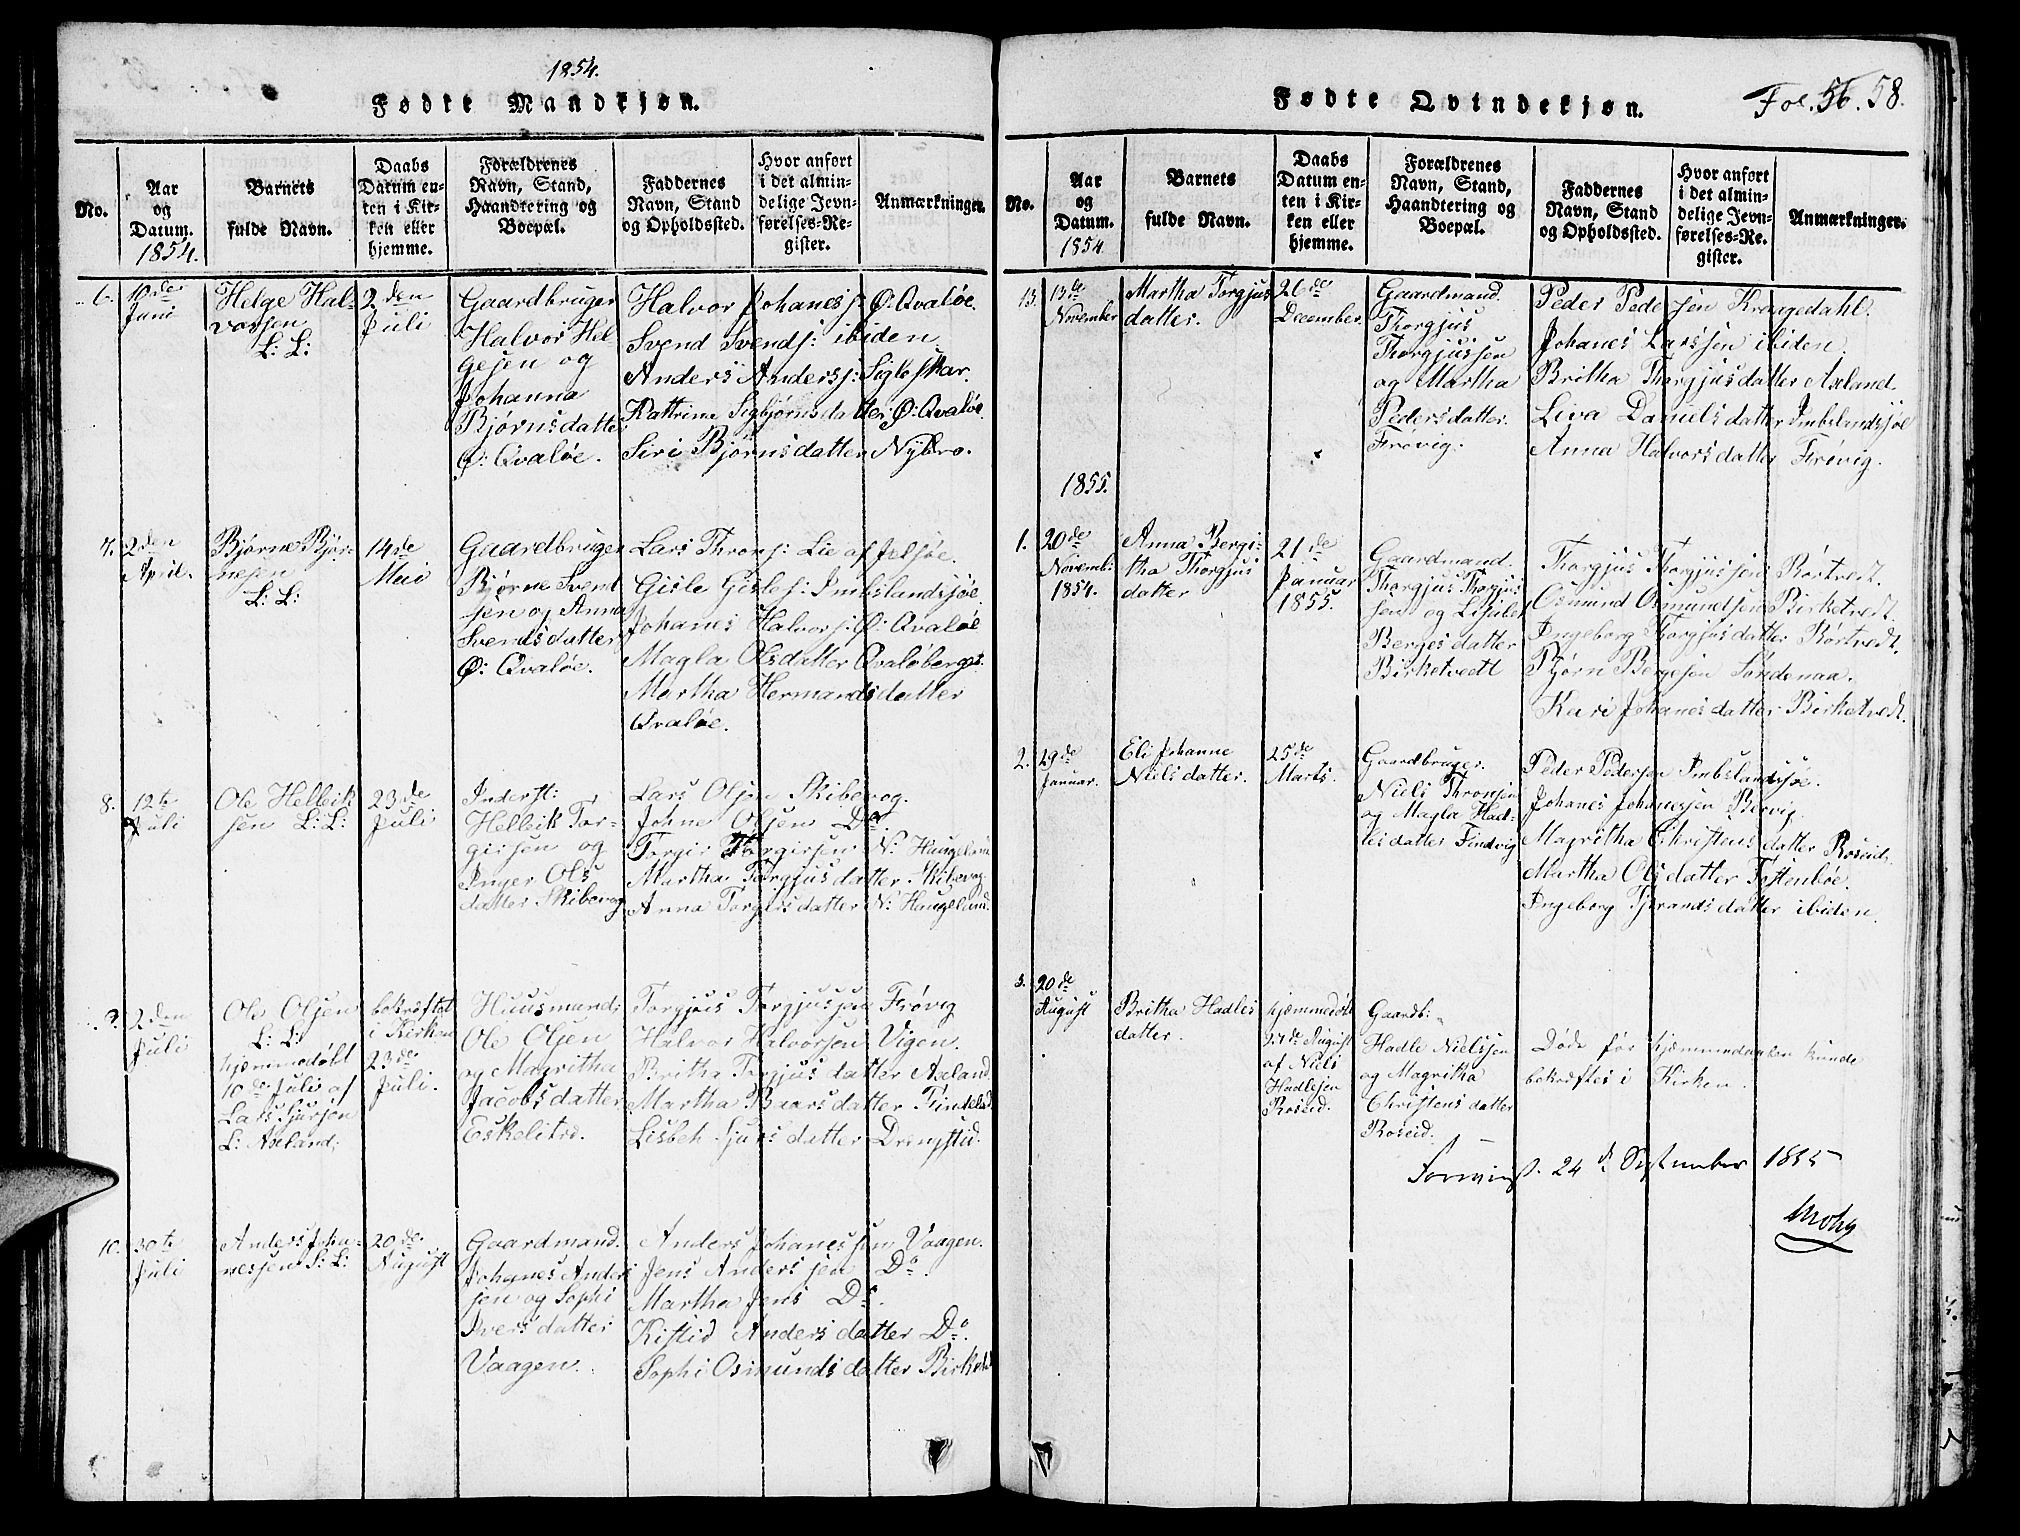 1854.
Fødte Mandkjøn.
No.
Aar og Datum. 1854.
Barnets fulde Navn.
Daabs Datum enten i Kirken eller hjemme.
Forældrenes Navn, Stand, Haandtering og Boepæl.
Faddernes Navn, Stand og Opholdssted.
Hvor anført i det almindelige Jevnførelses-Register.
Anmærkninger.
6.
10de
Juni
Helge Hal-
vorsen
L: L:
2den
Juli
Gaardbruger
Halvor Hel
gesen og
Johanna
Bjørnsdatter
Ø: Qvaløe.
Halvor Johanesf: Ø: Qvaløe.
Svend Svendf: ibiden.
Anders Andersf: Sigleskar.
Kattrine Sigbjørnsdatter Ø: Qvaløe.
Siri Bjørnsdatter Nybro.
7.
2den
April.
Bjørne Bjør-
nesen
L: L:
14de
Mai
Gaardbruger
Bjørne Svend
sen og Anna
Svendsdatter
Ø: Qvaløe.
Lars Thronf: Lie af Jelsøe.
Gisle Gislef: Imbslandsjøe.
Johanes Halvorf: Ø: Qvaløe
Magla Olsdatter Qvaløberget.
Martha Hermandsdatter
Qvaløe.
8.
12te
Juli
Ole Hellvik
sen L: L:
23de
Juli
Inderst:
Hellvik Tor-
girsen og
Inger Ols
datter Skibevog
Lars Olsen Skibevog.
Johne Olsen Do
Torgir Torgirsen N: Haugeland
Martha Torgjusdatter Skibevog.
Anna Torgirsdatter N: Haugeland.
9.
2den
Juli
Ole Olsen
L: L:
hjemmedøbt
10de Juli af
Lars Sjursen
L: Axland:
bekræftet
i Kirken
23de
Juli.
Huusmand:
Ole Olsen
og Magritha
Jacobsdatter
Eskelitrd.
Torgjus Torgjussen Frøvig
Halvor Halvorsen Vigen.
Britha Torgjusdatter Axland
Martha Baarsdatter
Lisbeh Sjursdatter
10.
30te
Juli
Anders Joha-
nessen L: L:
20de
August
Gaardmand.
Johanes Anders
sen og Sophi
Iversdatter
Vaagen.
Anders Johanessen Vaagen.
Jens Anderssen Do.
Martha Jens Do.
Kistid Andersdatter Do.
Sophi Osmundsdatter
Fødte Qvindekjøn.
Fol. 56. 58.
No.
Aar og Datum. 1854
Barnets fulde Navn.
Daabs Datum enten i Kirken eller hjemme.
Forældrenes Navn, Stand, Haandtering og Boepæl.
Faddernes Navn, Stand og Opholdssted.
Hvor anført i det almindelige Jevnførelses-Register.
Anmærkninger.
13.
13de
November
Martha Torgjus
datter.
26de
December.
Gaardmand.
Thorgjus
Thorgjussen
og Martha
Pedersdatter.
Frøvig.
Peder Pedersen Krogedahl.
Johanes Larssen ibiden.
Britha Thorgjusdatter Axland.
Liva Danielsdatter Imbslandsjøe
Anna Halvorsdatter Frøvig.
1855.
1.
20de
Novemb:
1854.
Anna Bergi-
tha Thorgjus
datter
21de
Januar
1855.
Gaardmand.
Thorgjus Thorgjus
sen og Lisabet
Bergesdatter
Birketvedt
Thorgjus Thorgjussen Rørtvedt.
Osmund Osmundsen Birketvedt.
Ingeborg Thorgjusdatter Rørtvedt.
Bjørn Bergesen Søndenaa.
Kari Johanesdatter Birketvedt.
2.
29de
Januar.
Eli Johanne
Nielsdatter.
25de
Marts.
Gaardbruger.
Niels Thronsen
og Magla Had-
lesdatter Findvig
Peder Pedersen Imbslandsjøe.
Johanes Johanesen Bervig.
Magritha Christensdatter Roseid.
Martha Olsdatter Tøttenbøe.
Ingeborg Tjerandsdatter ibiden.
3.
20de
August
Britha Hadles
datter.
hjemmedøbt
27de August
af Niels
Hadlesen
Roseid.
Gaardb:
Hadle Nielssen
og Magritha
Christensdatter
Roseid.
Døde før hjemmedaaben kunde
bekræftes i Kirken.
24de September 1855